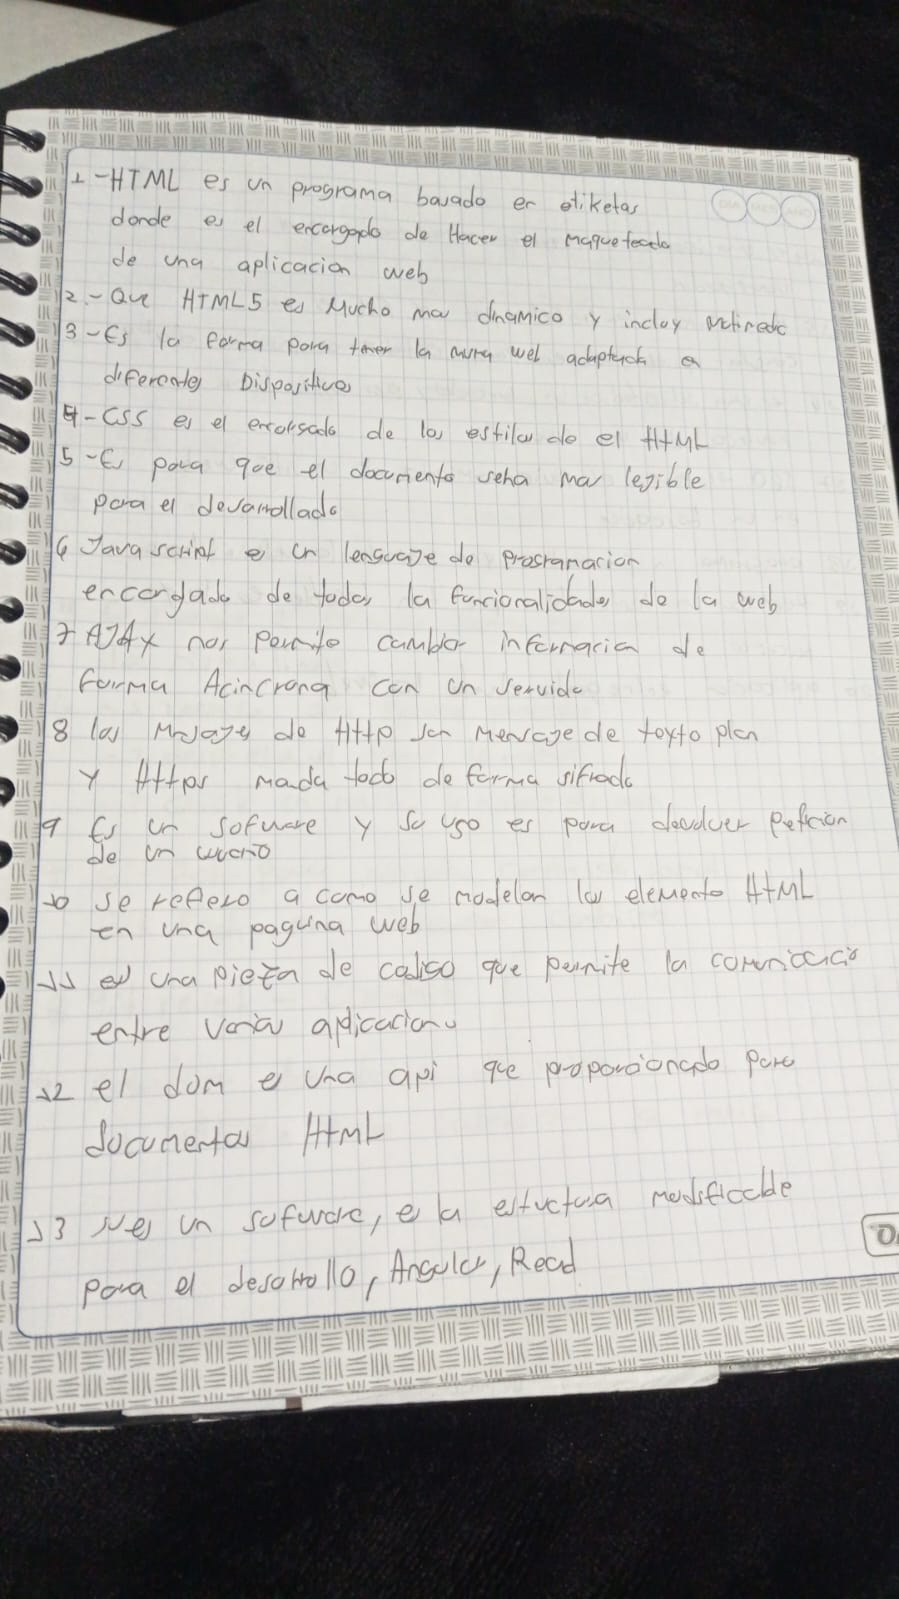 1-HTML es un programa basado en etiketas
donde es el encargado de Hacer el maqueteado
de una aplicacion web
2.- Que HTML5 es Mucho mas dinamico y incluy
3-Es la forma para tener la misma web adaptada a
diferentes Dispositivos
4-CSS es el encargado de los estilos de el HTML
5-Es para que el documento seha mas legible
para el desarrollado
6 Java script es un lenguaje de programacion
encargado de todas la funcionalidades de la web
7 AJAX nos permite cambiar informacion de
forma Acincrona con un servido
8 las Msajes de Http son Mensaje de texto plan
y Https manda todo de forma sifrada
9 Es un sofware y su uso es para devolver peticion
de un
10 se refiero a como se modelan los elemento HTML
en una pagina web
11 es una pieza de codigo que permite la comunicacio
entre varias aplicacions
12 el dom es una api que proporcionado para
documentos HTML
13 es un sofware, es la estuctura modificable
para el desarrollo, Angular, Read